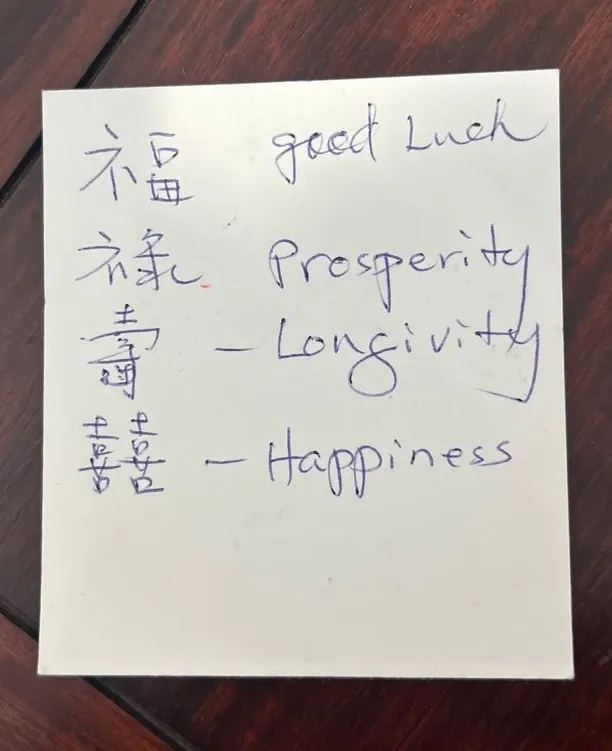 福 good Luck
禄 Prosperity
壽 - Longivity
囍 - Happiness